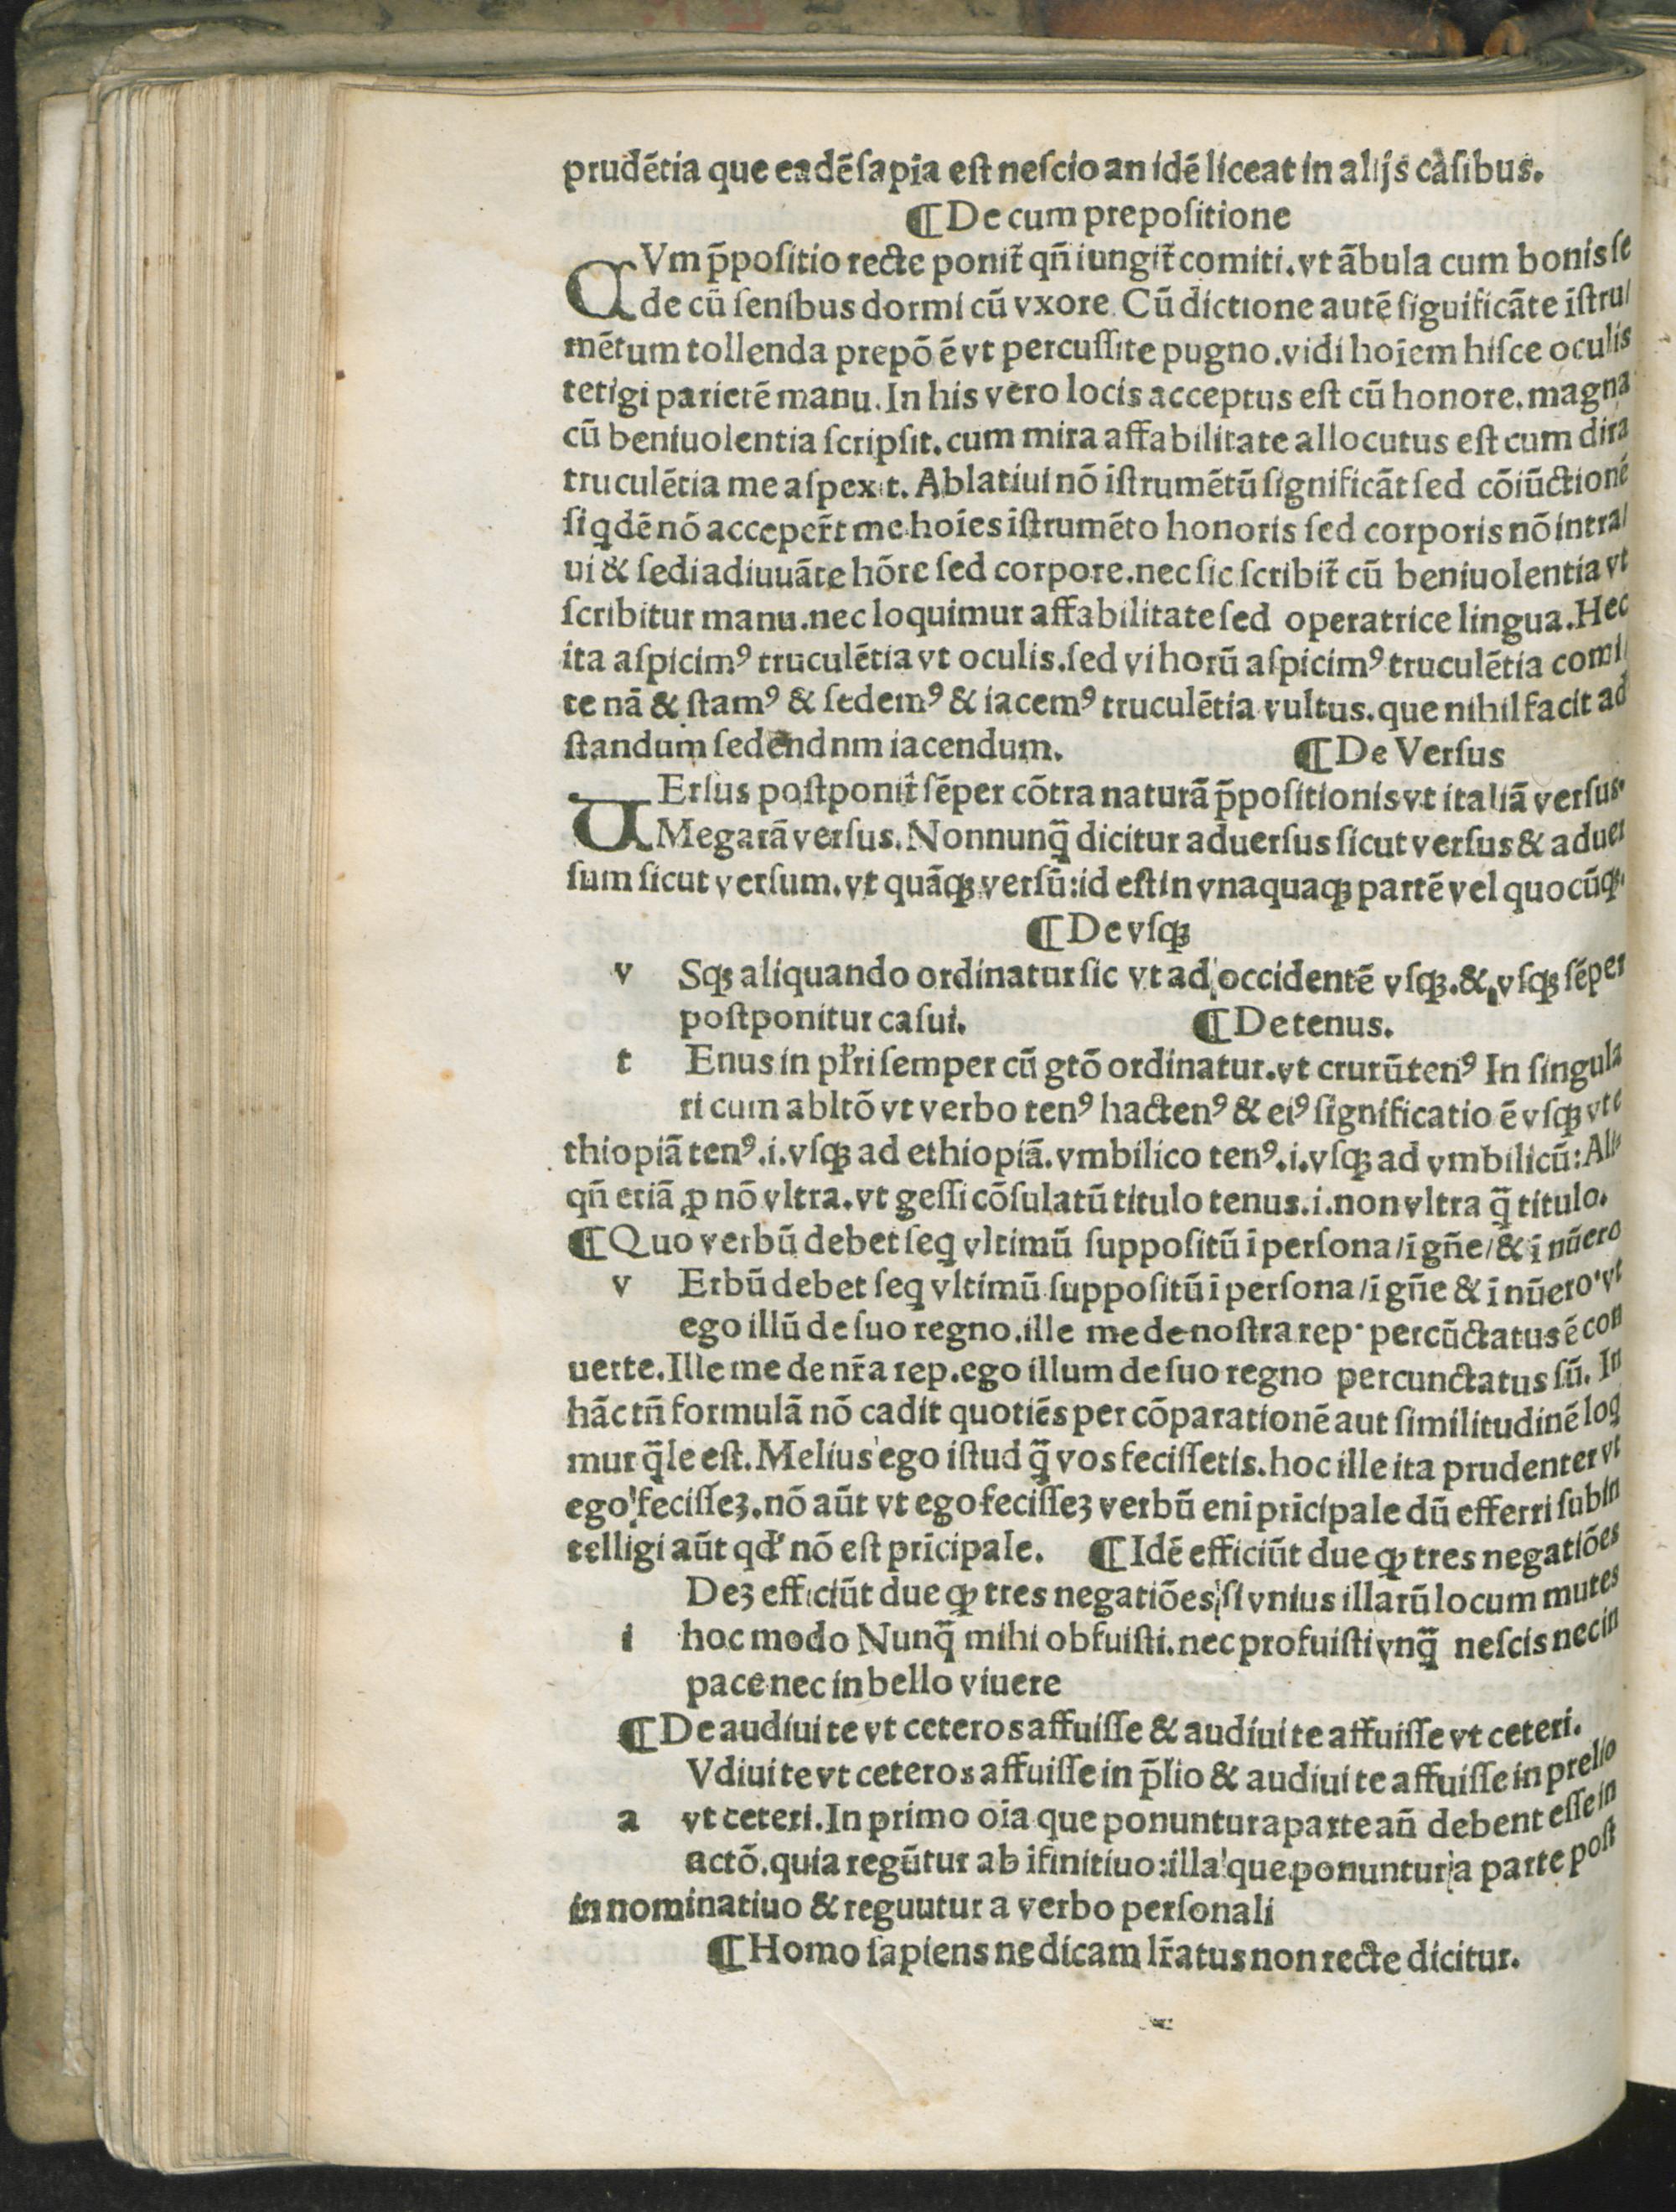 prudētia que eadē ſapīa eſt neſcio an idē liceat in alijs caſibus.
¶ De cum prepoſitione
CVm p̄poſitio recte ponit̄ qn̄ iungit̄ comiti. vt ābula cum bonis ſe
de cū ſenibus dormi cū vxore. Cū dictione autē ſiguificāte īſtru/
mētum tollenda prepō ē vt percuſſi te pugno. vidi hoīem hiſce oculis
tetigi parietē manu. In his vero locis acceptus eſt cū honore. magna
cū beniuolentia ſcripſit. cum mira affabilitate allocutus eſt cum dira
truculētia me aſpexit. Ablatiui nō īſtrumētū ſignificāt ſed cōiūctionē
ſiqdē nō acceper̄t me hoīes īſtrumēto honoris ſed corporis nō intra/
ui & ſedi adiuuāte hōre ſed corpore. nec ſic ſcribit̄ cū beniuolentia vt
ſcribitur manu. nec loquimur affabilitate ſed operatrice lingua. Hec
ita aſpicimꝰ truculētia vt oculis. ſed vi horū aſpicimꝰ truculētia comi/
te nā & ſtamꝰ & ſedemꝰ & iacemꝰ truculētia vultus. que nihil facit ad
ſtandum ſedendnm iacendum. ¶ De Verſus
VErſus poſtponit̄ ſēper cōtra naturā p̄poſitionis vt italiā verſus.
Megarā verſus. Nonnunq̄ dicitur aduerſus ſicut verſus & aduer
ſum ſicut verſum. vt quāqꝫ verſū: id eſt in vnaquaqꝫ partē vel quocūqꝫ.
¶ De vſqꝫ
v Sqꝫ aliquando ordinatur ſic vt ad occidentē vſqꝫ. & vſqꝫ ſēper
poſtponitur caſui. ¶ De tenus.
t Enus in pl̄ri ſemper cū gtō ordinatur. vt crurū tenꝰ In ſingula
ri cum abltō vt verbo tenꝰ hactenꝰ & eiꝰ ſignificatio ē vſqꝫ vt e
thiopiā tenꝰ. i. vſqꝫ ad ethiopiā. vmbilico tenꝰ. i. vſqꝫ ad vmbilicū: Ali-
qn̄ etiā ꝓ nō vltra. vt geſſi cōſulatū titulo tenus. i. non vltra q̄ titulo.
¶ Quo verbū debet ſeq vltimū ſuppoſitū ī perſona / ī gn̄e / & ī nūero
v Erbū debet ſeq vltimū ſuppoſitū ī perſona / ī gn̄e & ī nūero. vt
ego illū de ſuo regno. ille me de noſtra rep. percūctatus ē con
uerte. Ille me de nr̄a rep. ego illum de ſuo regno percunctatus ſū. In
hāc tn̄ formulā nō cadit quotiēs per cōparationē aut ſimilitudinē loq
mur q̄le eſt. Melius ego iſtud q̄ vos feciſſetis. hoc ille ita prudenter vt
ego feciſſeꝫ. nō aūt vt ego feciſſeꝫ verbū eni prīcipale dū efferri ſubin
telligi aūt qđ nō eſt prīcipale. ¶ Idē efficiūt due qꝫ tres negatiōes
Deꝫ efficiūt due qꝫ tres negatiōes ſi vnius illarū locum mutes
i hoc modo Nunq̄ mihi obfuiſti. nec profuiſti vnq̄ neſcis nec in
pace nec in bello viuere
¶ De audiui te vt ceteros affuiſſe & audiui te affuiſſe vt ceteri.
Vdiui te vt ceteros affuiſſe in p̄lio & audiui te affuiſſe in prelio
a vt ceteri. In primo oīa que ponuntur a parte an̄ debent eſſe in
actō. quia regūtur ab īfinitiuo: illa que ponuntur a parte poſt
in nominatiuo & reguutur a verbo perſonali
¶ Homo ſapiens ne dicam lr̄atus non recte dicitur.